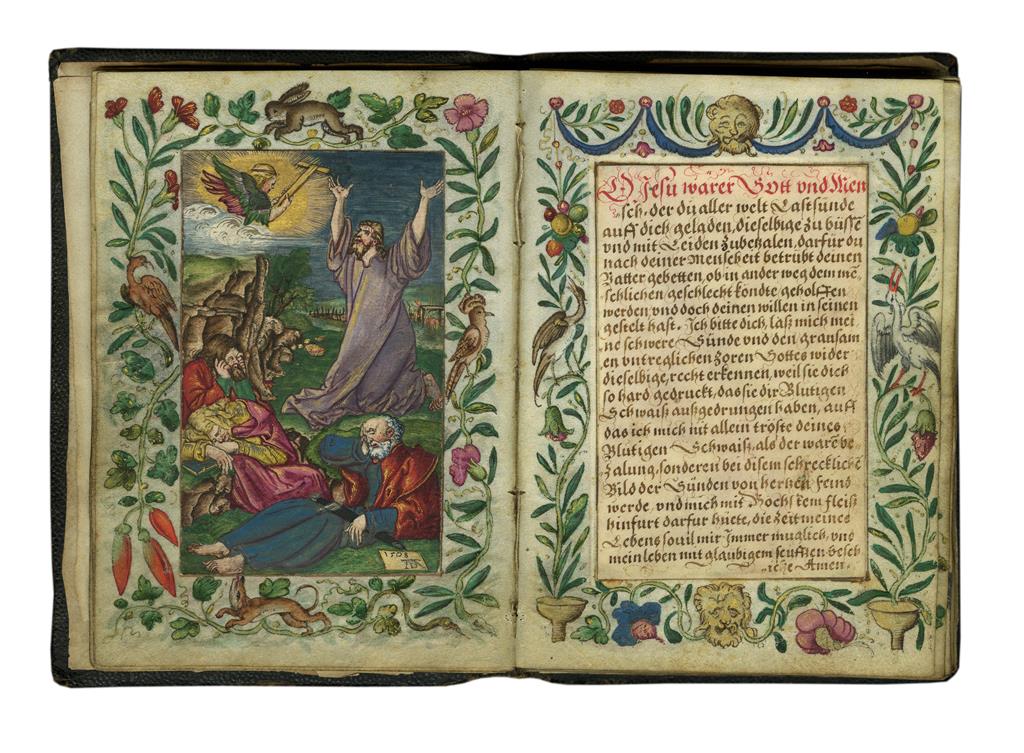 1508
AD
O Jesu warer Gott vnd Men
sch, der du aller welt Lastsünde
auff dich geladen, dieselbige zu büssē
vnd mit Leiden zubezalen, darfür du
nach deiner Menscheit betrübt deinen
Vatter gebetten, ob in ander weg dem mē
schlichen geschlecht köndte geholffen
werden, vnd doch deinen willen in seinen
gestelt hast. Ich bitte dich, laß mich mei
ne schwere Sünde vnd den grausam
en vntreglichen Zoren Gottes wider
dieselbige, recht erkennen, weil sie dich
so hard gedruckt, das sie dir Blutigen
Schwaiß außgedrungen haben, auff
das ich mich nit allein tröste deines
Blutigen Schwaiß, als der warē be
zalung, sonderen bei disem schrecklichē
Bild der Sünden von hertzen feind
werde, vnd mich mit Hochstem fleiß
hinfurt darfur hüete, die Zeit meines
Lebens souil mir Immer muglich, vnd
mein leben mit glaubigem seufftzen besch
liesse Amen.